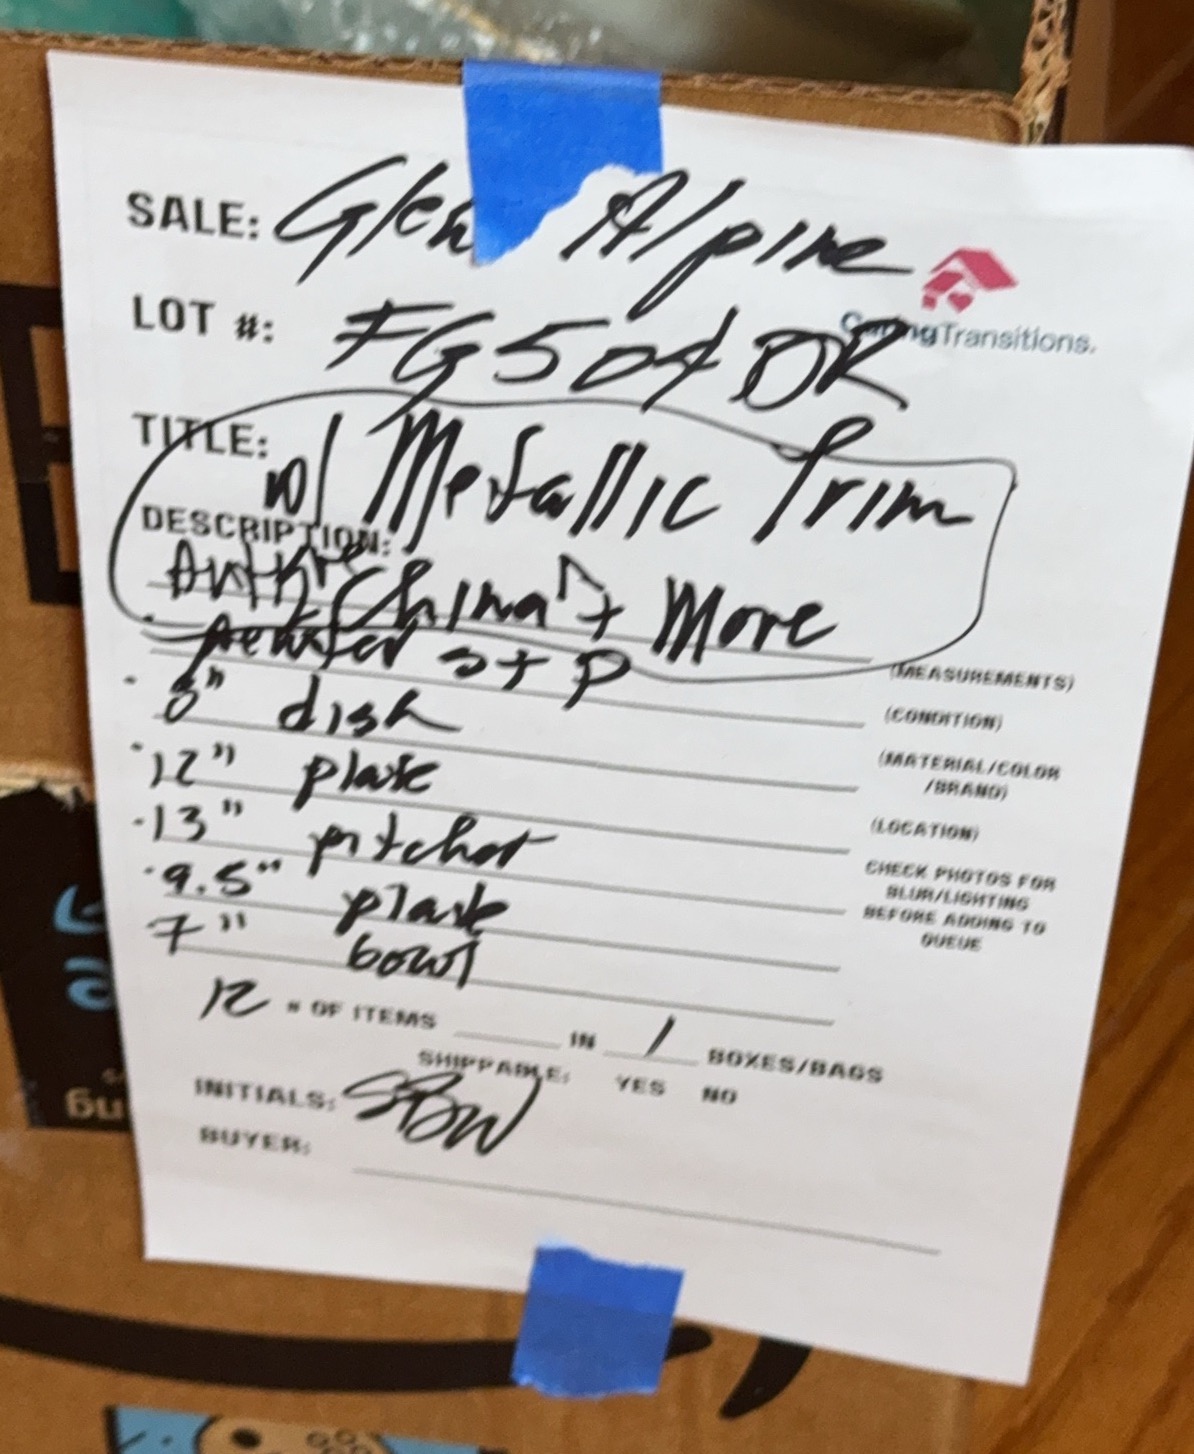 SALE: Glen Alpine
CaringTransitions.
LOT #: FG504DR
TITLE: w/ Metallic Trim
DESCRIPTION:
Antique China^ + More
pewter S + P
(MEASUREMENTS)
· 8" dish
(CONDITION)
· 12" plate
(MATERIAL/COLOR
/BRAND)
· 13" pitcher
(LOCATION)
· 9.5" plate
CHECK PHOTOS FOR
BLUR/LIGHTING
BEFORE ADDING TO
QUEUE
7" bowl
12 # OF ITEMS IN 1 BOXES/BAGS
SHIPPABLE: YES NO
INITIALS: SBW
BUYER: